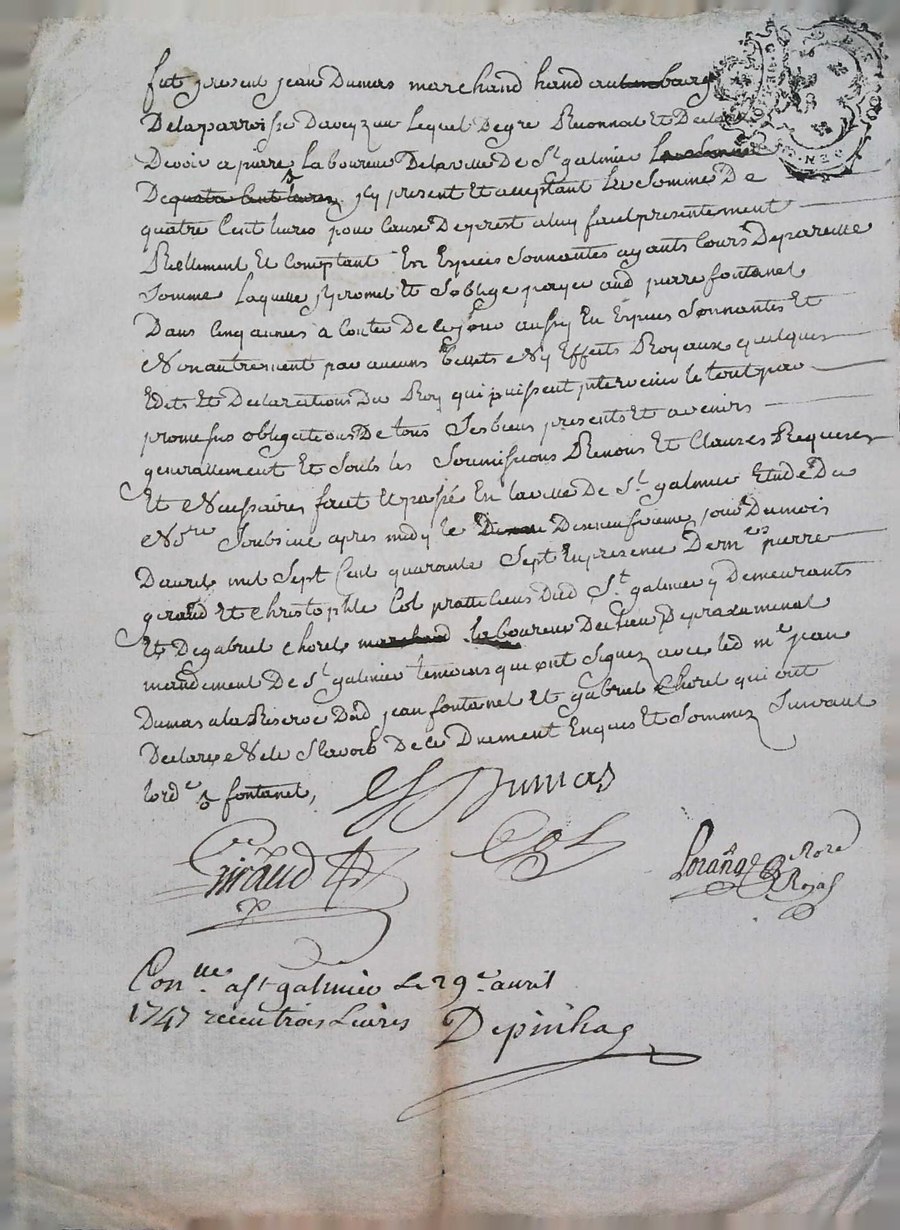 fut present jean Dumas marchand
Delaparroisse Daveyzeu Lequel Degre Reconnoit Et
Devoir a pierre Laboureur Delaville De St galmier
De quatre Cent livres jcy present Et acceptant La Somme De
quatre Cent livres pour Cause De prest aluy fait presentement
Réellement Et Comptant En Especes Sonnantes ayants Cours De pareille
Somme Laquelle jl promet Et Soblige payer aud pierre fontanel
Dans Cinq années a Conter De ce jour aussy En Especes Sonnantes Et
Nonautrement par aucuns billets Ny Effets Royaux quelques
Edits Et Declarations Du Roy qui puissent jntervenir le tout par
promesses obligations De tous Ses biens presents Et avenirs
generallement Et Soubs les Soumissions Renons Et Clauses Requises
Et Necessaires fait Et passé En laville De St galmier Etude Du
Nre Soubsigné apres midy le Dixneufvieme jour Dumois
Davril mil Sept Cent quarante Sept En presence De mes pierre
giraud Et Christophle Col pratticiens Dud St galmier y Demeurants
Et De gabriel Chorel marchand laboureur Du Lieu
mandement De St galmier temoins qui ont Signez avec led me jean
Dumas ala Reserve Dud jean fontanel Et gabriel Chorel qui ont
Declarez Ne le Scavoir De ce Duement Enquis Et Sommez Suivant
lordce fontanel,
Dumas
Giraud
Col
Lorange Nore Royal
Conlle a St galmier Le 29e avril
1747 receu trois Livres Depinhac